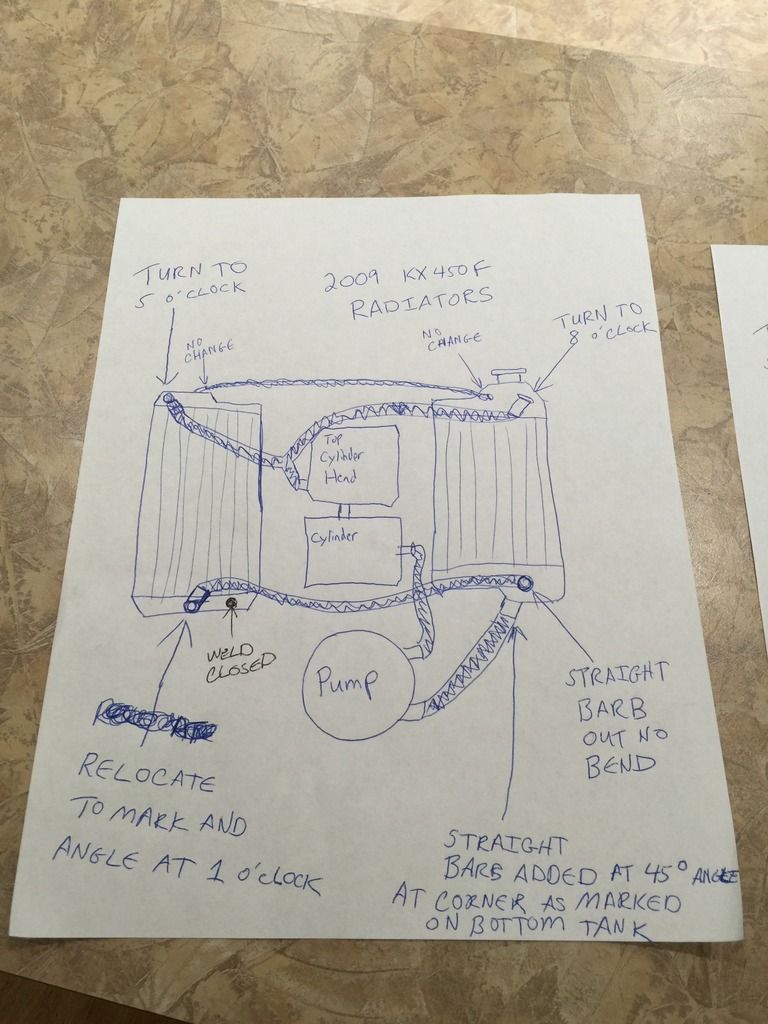 TURN TO
5 O'CLOCK
2009 KX450F
RADIATORS
NO
CHANGE
NO
CHANGE
TURN TO
8 O'CLOCK
Top
Cylinder
Head
Cylinder
WELD
CLOSED
Pump
STRAIGHT
BARB
OUT NO
BEND
RELOCATE
TO MARK AND
ANGLE AT 1 O'CLOCK
STRAIGHT
BARB ADDED AT 45° ANGLE
AT CORNER AS MARKED
ON BOTTOM TANK